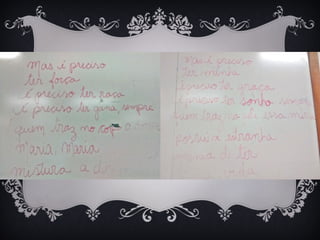 Mas é preciso
ter força
é preciso ter raça
é preciso ter gana sempre
quem traz no corpo a
Maria, Maria
mistura a dor
Mas é preciso
ter manha
é preciso ter graça
é preciso ter sonho sempre
quem traz na
possui a estranha
mania de ter